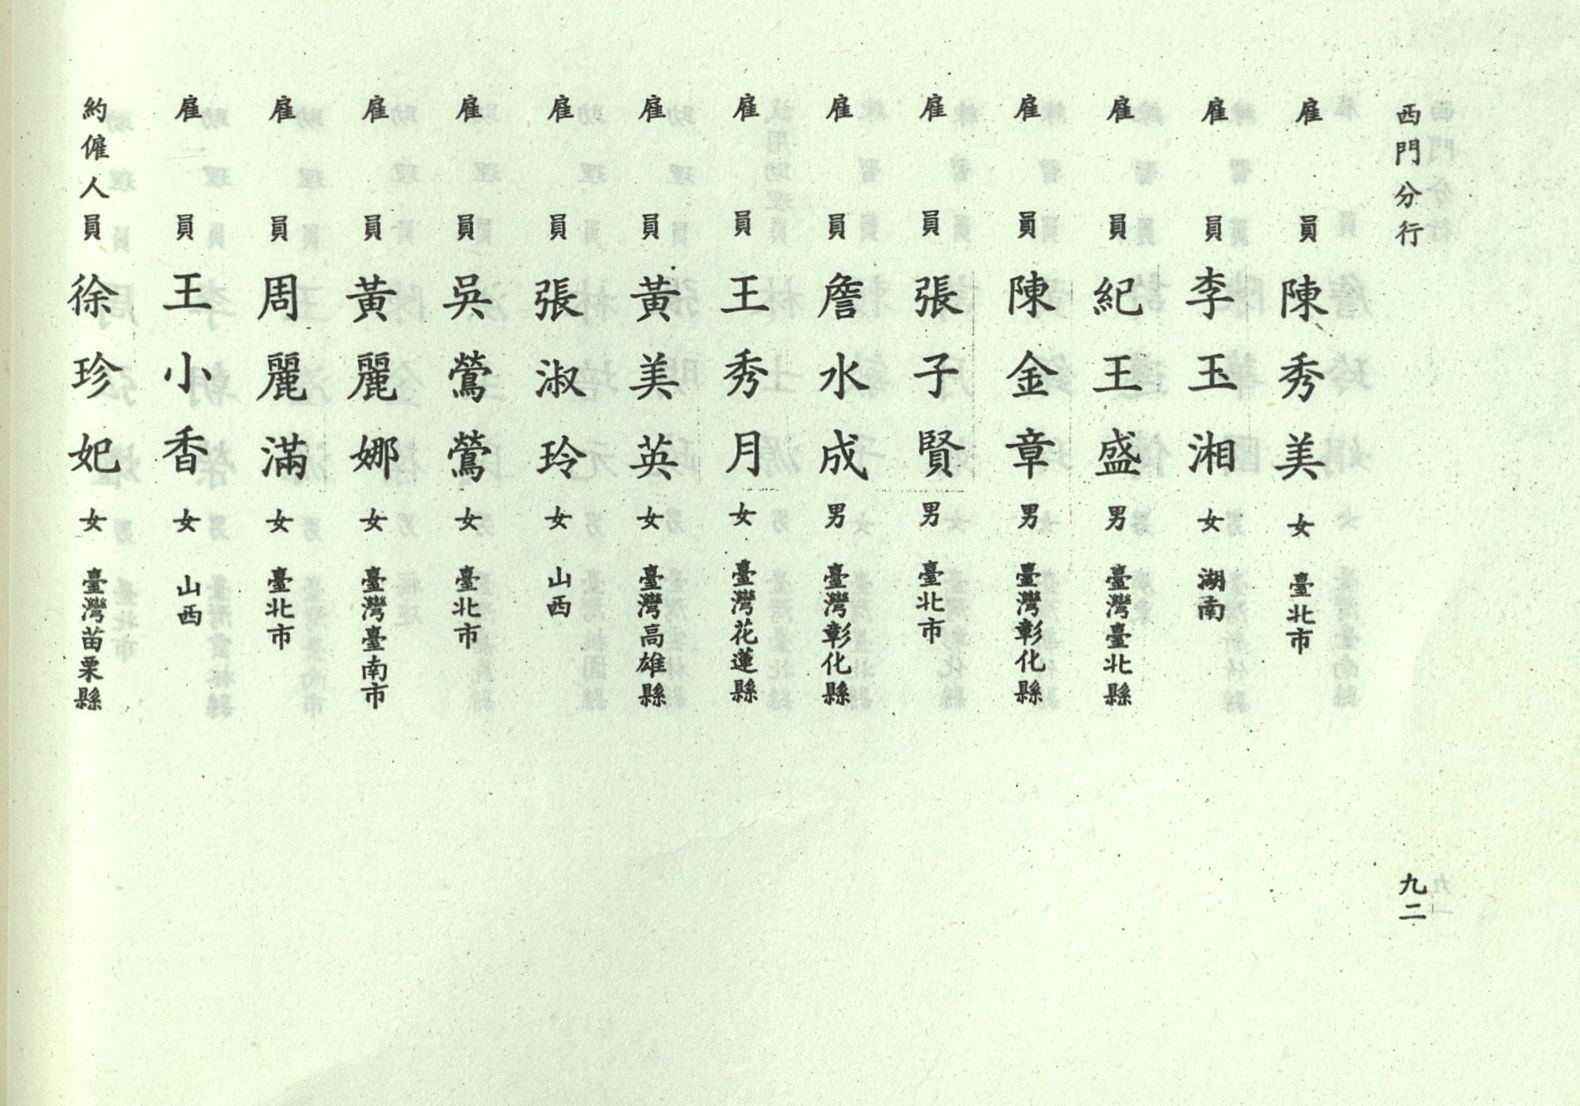 西門分行
九二
雇員 陳秀美 女 臺北市
雇員 李玉湘 女 湖南
雇員 紀王盛 男 臺灣臺北縣
雇員 陳金章 男 臺灣彰化縣
雇員 張子賢 男 臺北市
雇員 詹水成 男 臺灣彰化縣
雇員 王秀月 女 臺灣花蓮縣
雇員 黃美英 女 臺灣高雄縣
雇員 張淑玲 女 山西
雇員 吳鶯鶯 女 臺北市
雇員 黃麗娜 女 臺灣臺南市
雇員 周麗滿 女 臺北市
雇員 王小香 女 山西
約僱人員 徐珍妃 女 臺灣苗栗縣